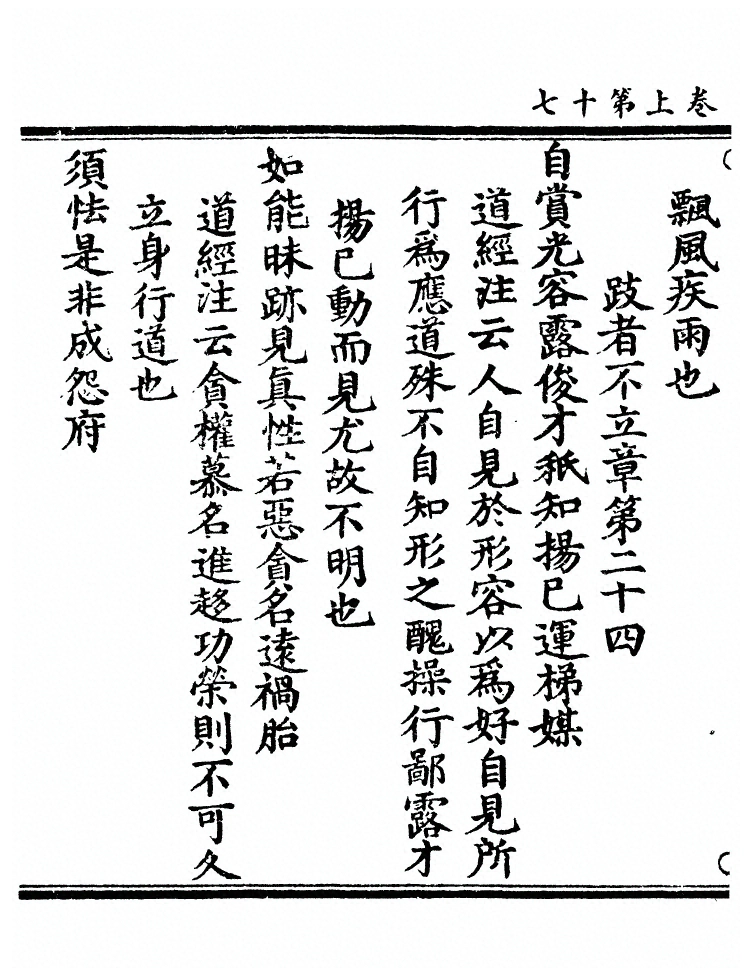 卷上第十七
飄風疾雨也
跂者不立章第二十四
自賞光容露俊才秖知揚已運梯媒
道經注云人自見於形容以爲好自見所
行爲應道殊不自知形之醜操行鄙露才
揚已動而見尤故不明也
如能昧跡見眞性若惡貪名遠禍胎
道經注云貪權慕名進趍功榮則不可久
立身行道也
須恠是非成怨府